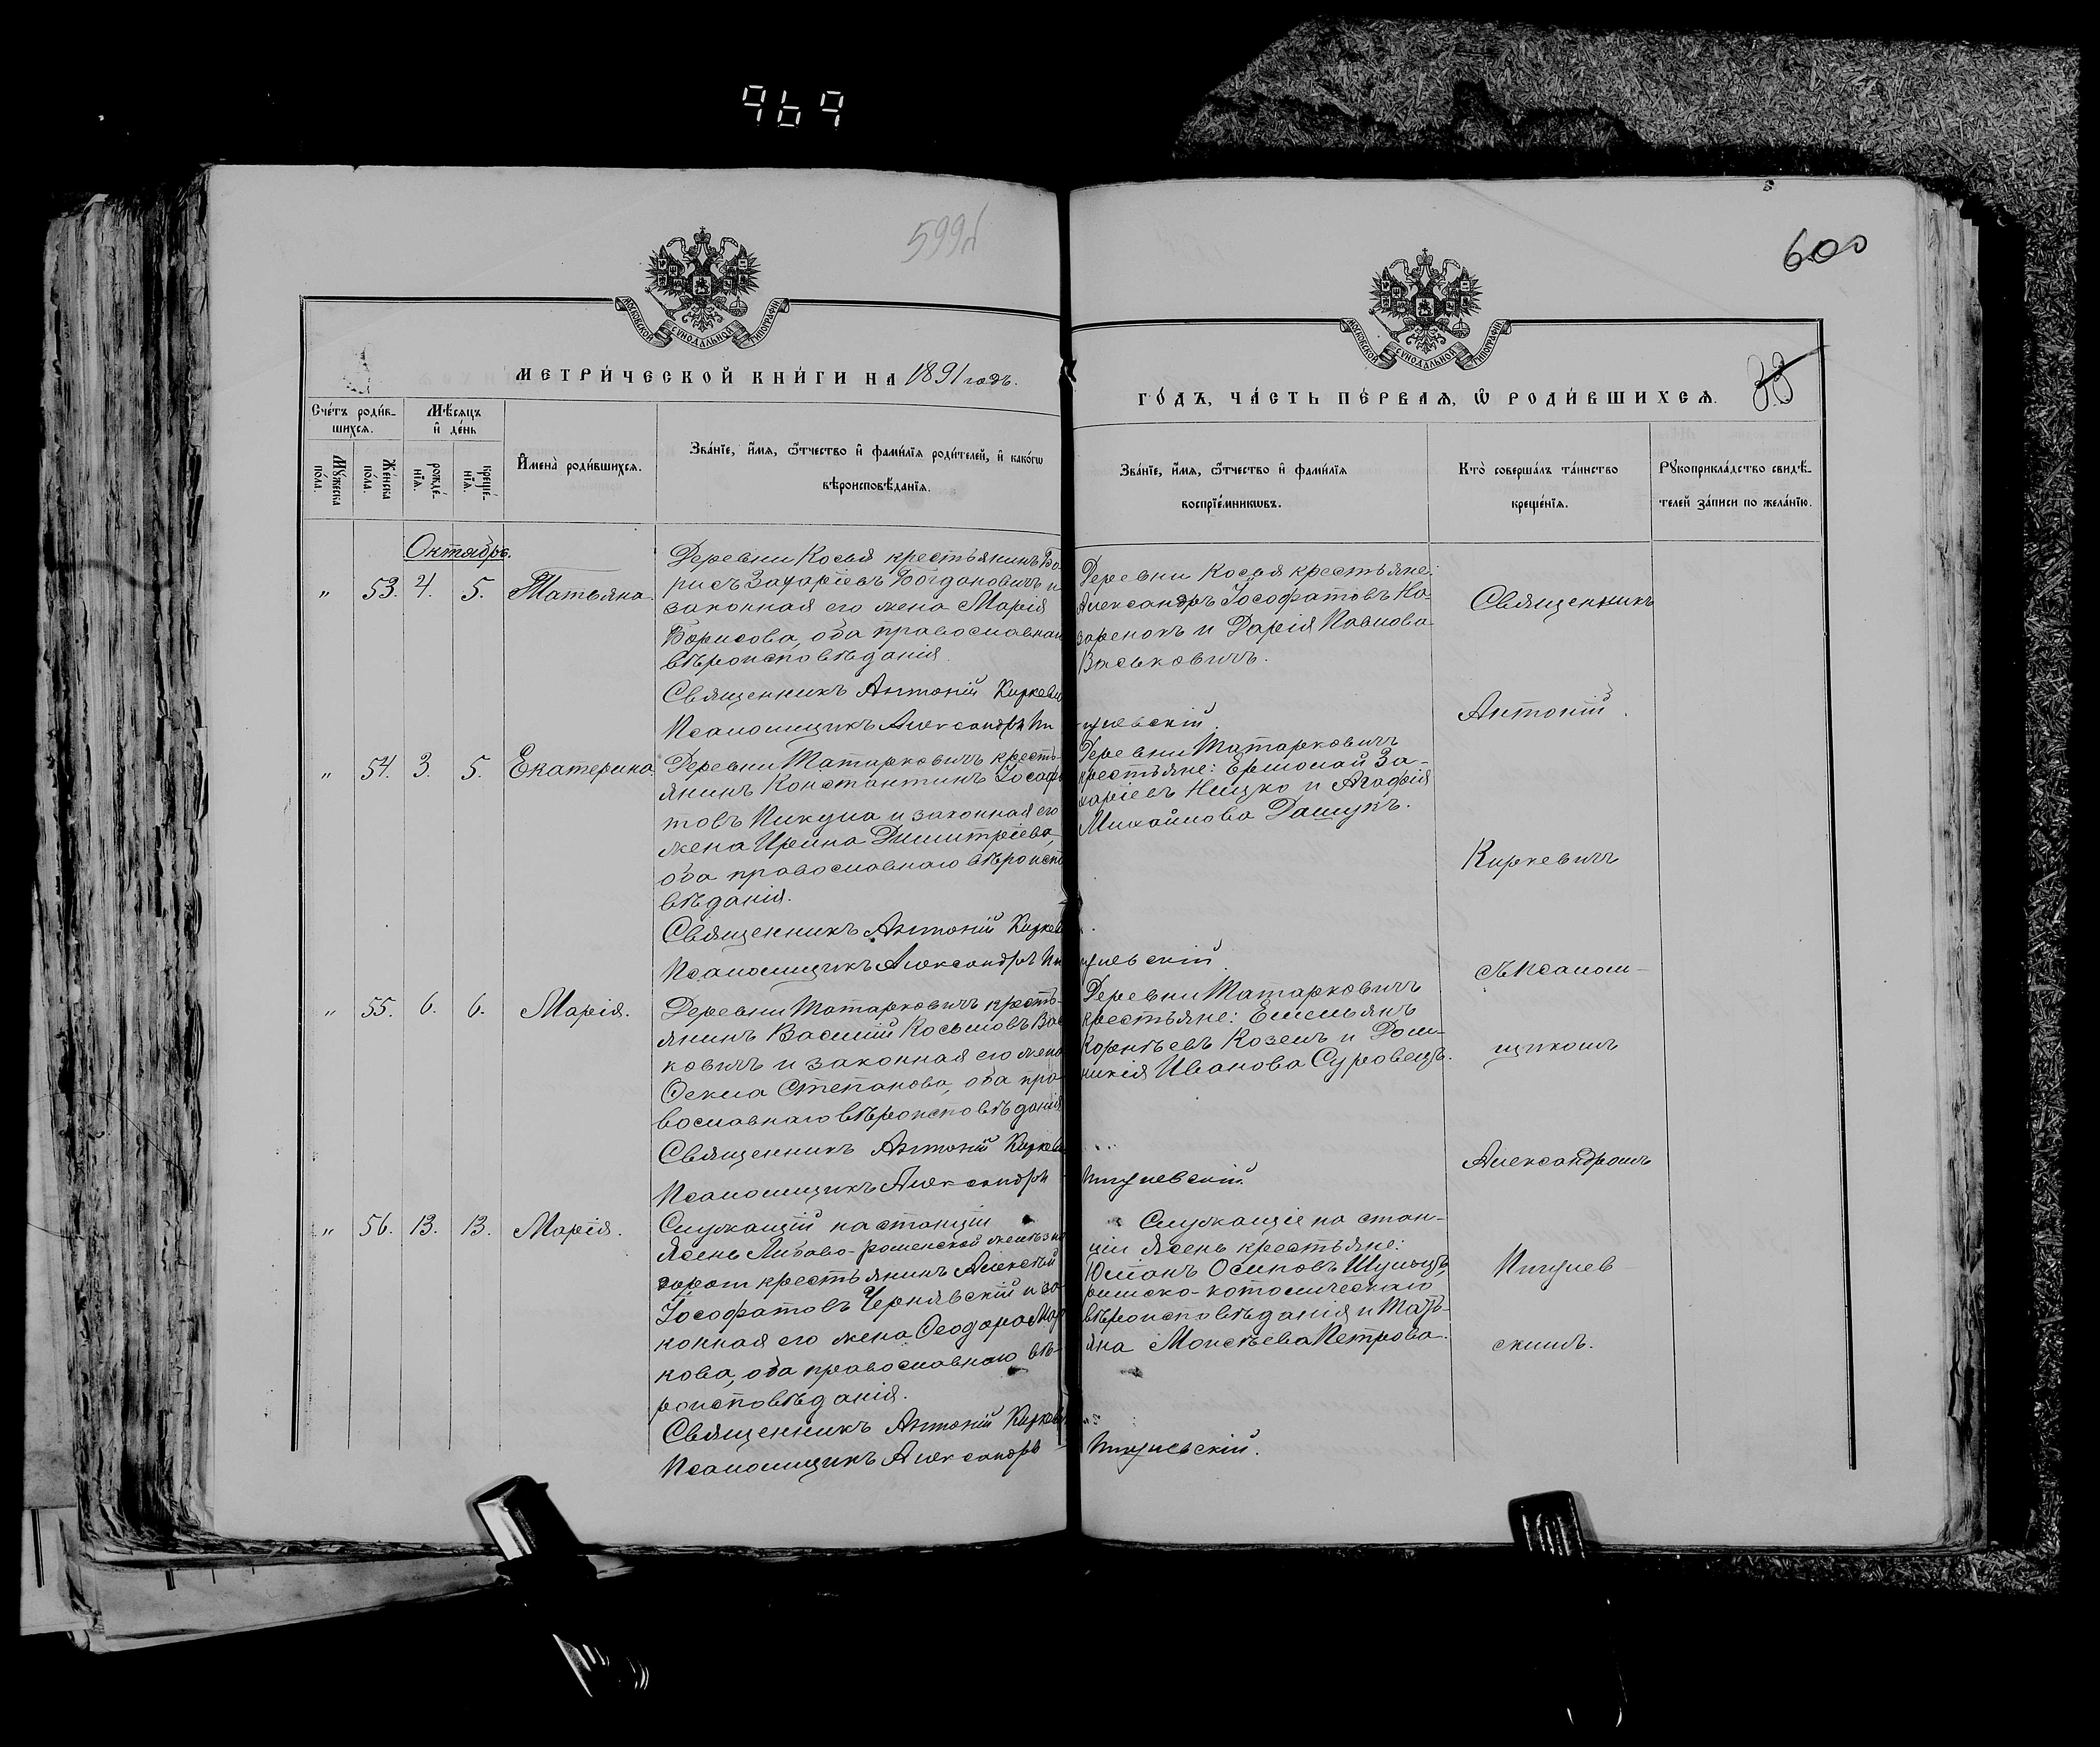 969
599б
600
МОСКОВСКОЙ СѴНОДАЛЬНОЙ ТИПОГРАФІИ
МОСКОВСКОЙ СѴНОДАЛЬНОЙ ТИПОГРАФІИ
МЕТРИ́ЧЕСКОЙ КНИ́ГИ НА 1891 годъ.
ГО́ДЪ, ЧА́СТЬ ПЕ́РВАѦ, Ѿ РОДИ́ВШИХСѦ.
Сче́тъ роди́в-
шихсѧ.
Мѣ́сѧцъ
и҆ де́нь
Мꙋ́жеска по́ла.
Же́нска по́ла.
рожде́-нїѧ.
креще́-нїѧ.
И҆мена̀ роди́вшихсѧ.
Зва́нїе, и҆́мѧ, ѻ҆́тчество и҆ фами́лїѧ роди́телей, и҆ како́гѡ
вѣроисповѣ́данїѧ.
Зва́нїе, и҆́мѧ, ѻ҆́тчество и҆ фами́лїѧ
воспрїе́мникѡвъ.
Кто̀ соверша́лъ та́инство
креще́нїѧ.
Рꙋкоприкла́дство свидѣ́-
телей за́писи по жела́нїю.
Октябрь.
" 53. 4. 5. Татьяна.
Деревни Косья крестьянинъ Бо-
рисъ Захаріевъ Богдановичъ и
законная его жена Марія
Борисова, оба православнаго
вѣроисповѣданія.
Священникъ Антоній Киркевичъ
Псаломщикъ Александръ
Деревни Косья крестьяне:
Александръ Іософатовъ На-
заренокъ и Дарія Павлова
Васьковичъ.
" 54. 3. 5. Екатерина
Деревни Татарковичъ кресть-
янинъ Константинъ Іосафа-
товъ Пикула и законная его
жена Ирина Димитріева,
оба православнаго вѣроиспо-
вѣданія.
Священникъ Антоній Киркевичъ
Псаломщикъ Александръ
Деревни Татарковичъ
крестьяне: Ермолай За-
харіевъ Ницко и Агафія
Михайлова Дашукъ.
" 55. 6. 6. Марія.
Деревни Татарковичъ кресть-
янинъ Василій Косьмовъ Вас-
ковичъ и законная его жена
Ѳекла Степанова, оба пра-
вославнаго вѣроисповѣданія
Священникъ Антоній Киркевичъ
Псаломщикъ Александръ
Деревни Татарковичъ
крестьяне: Емельянъ
Корнѣевъ Козелъ и Дом-
никія Иванова Суровецъ.
" 56. 13. 13. Марія.
Служащій на станціи
Ясень Либаво-роменской желѣзн
дороги крестьянинъ Алексѣй
Іософатовъ Чернявскій и за-
конная его жена Ѳеодора Мар-
кова, оба православнаго вѣ-
роисповѣданія.
Священникъ Антоній Киркевичъ
Псаломщикъ Александръ
Служащіе на стан-
ціи Ясень крестьяне:
Юліанъ Осиповъ
римско-католическаго
вѣроисповѣданія и Тать-
яна Моисѣева Петрова.
Священникъ
Антоній
Киркевичъ
съ псалом-
щикомъ
Александромъ
скимъ.